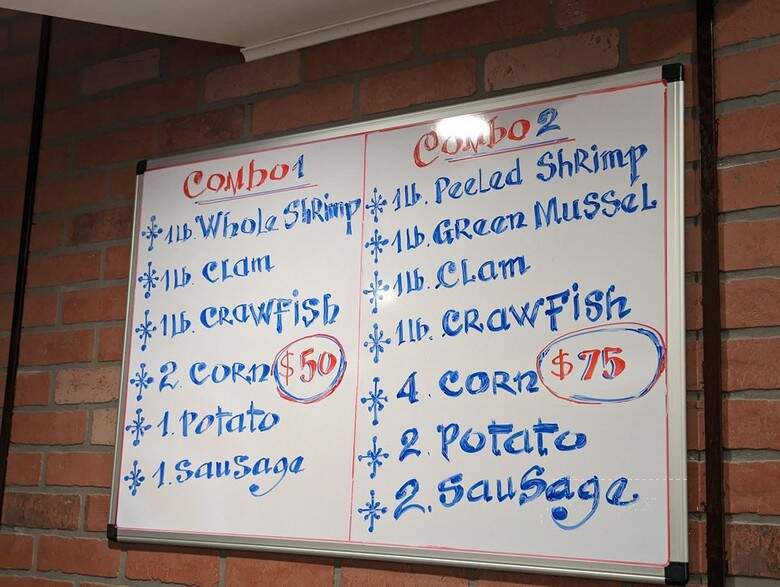 Combo 1
* 1 lb. Whole Shrimp
* 1 lb. Clam
* 1 lb. Crawfish
* 2 Corn $50
* 1. Potato
* 1. Sausage
Combo 2
* 1 lb. Peeled Shrimp
* 1 lb. Green Mussel
* 1 lb. Clam
* 1 lb. Crawfish
* 4. Corn $75
* 2. Potato
* 2. Sausage